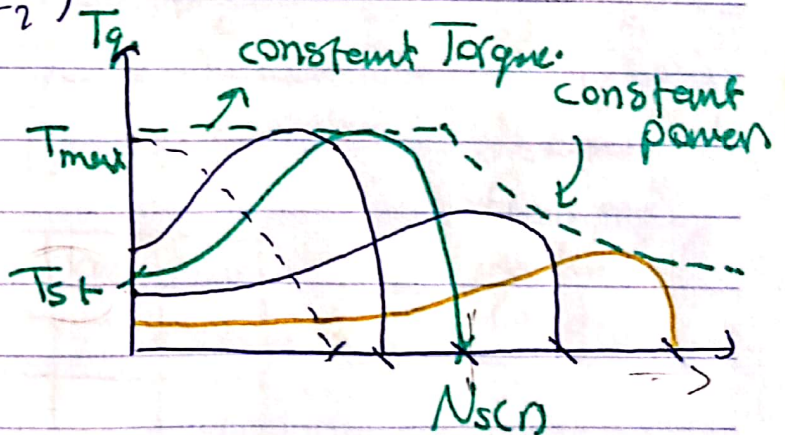 Tq
constant Torque.
constant
power
Tmax
Tst